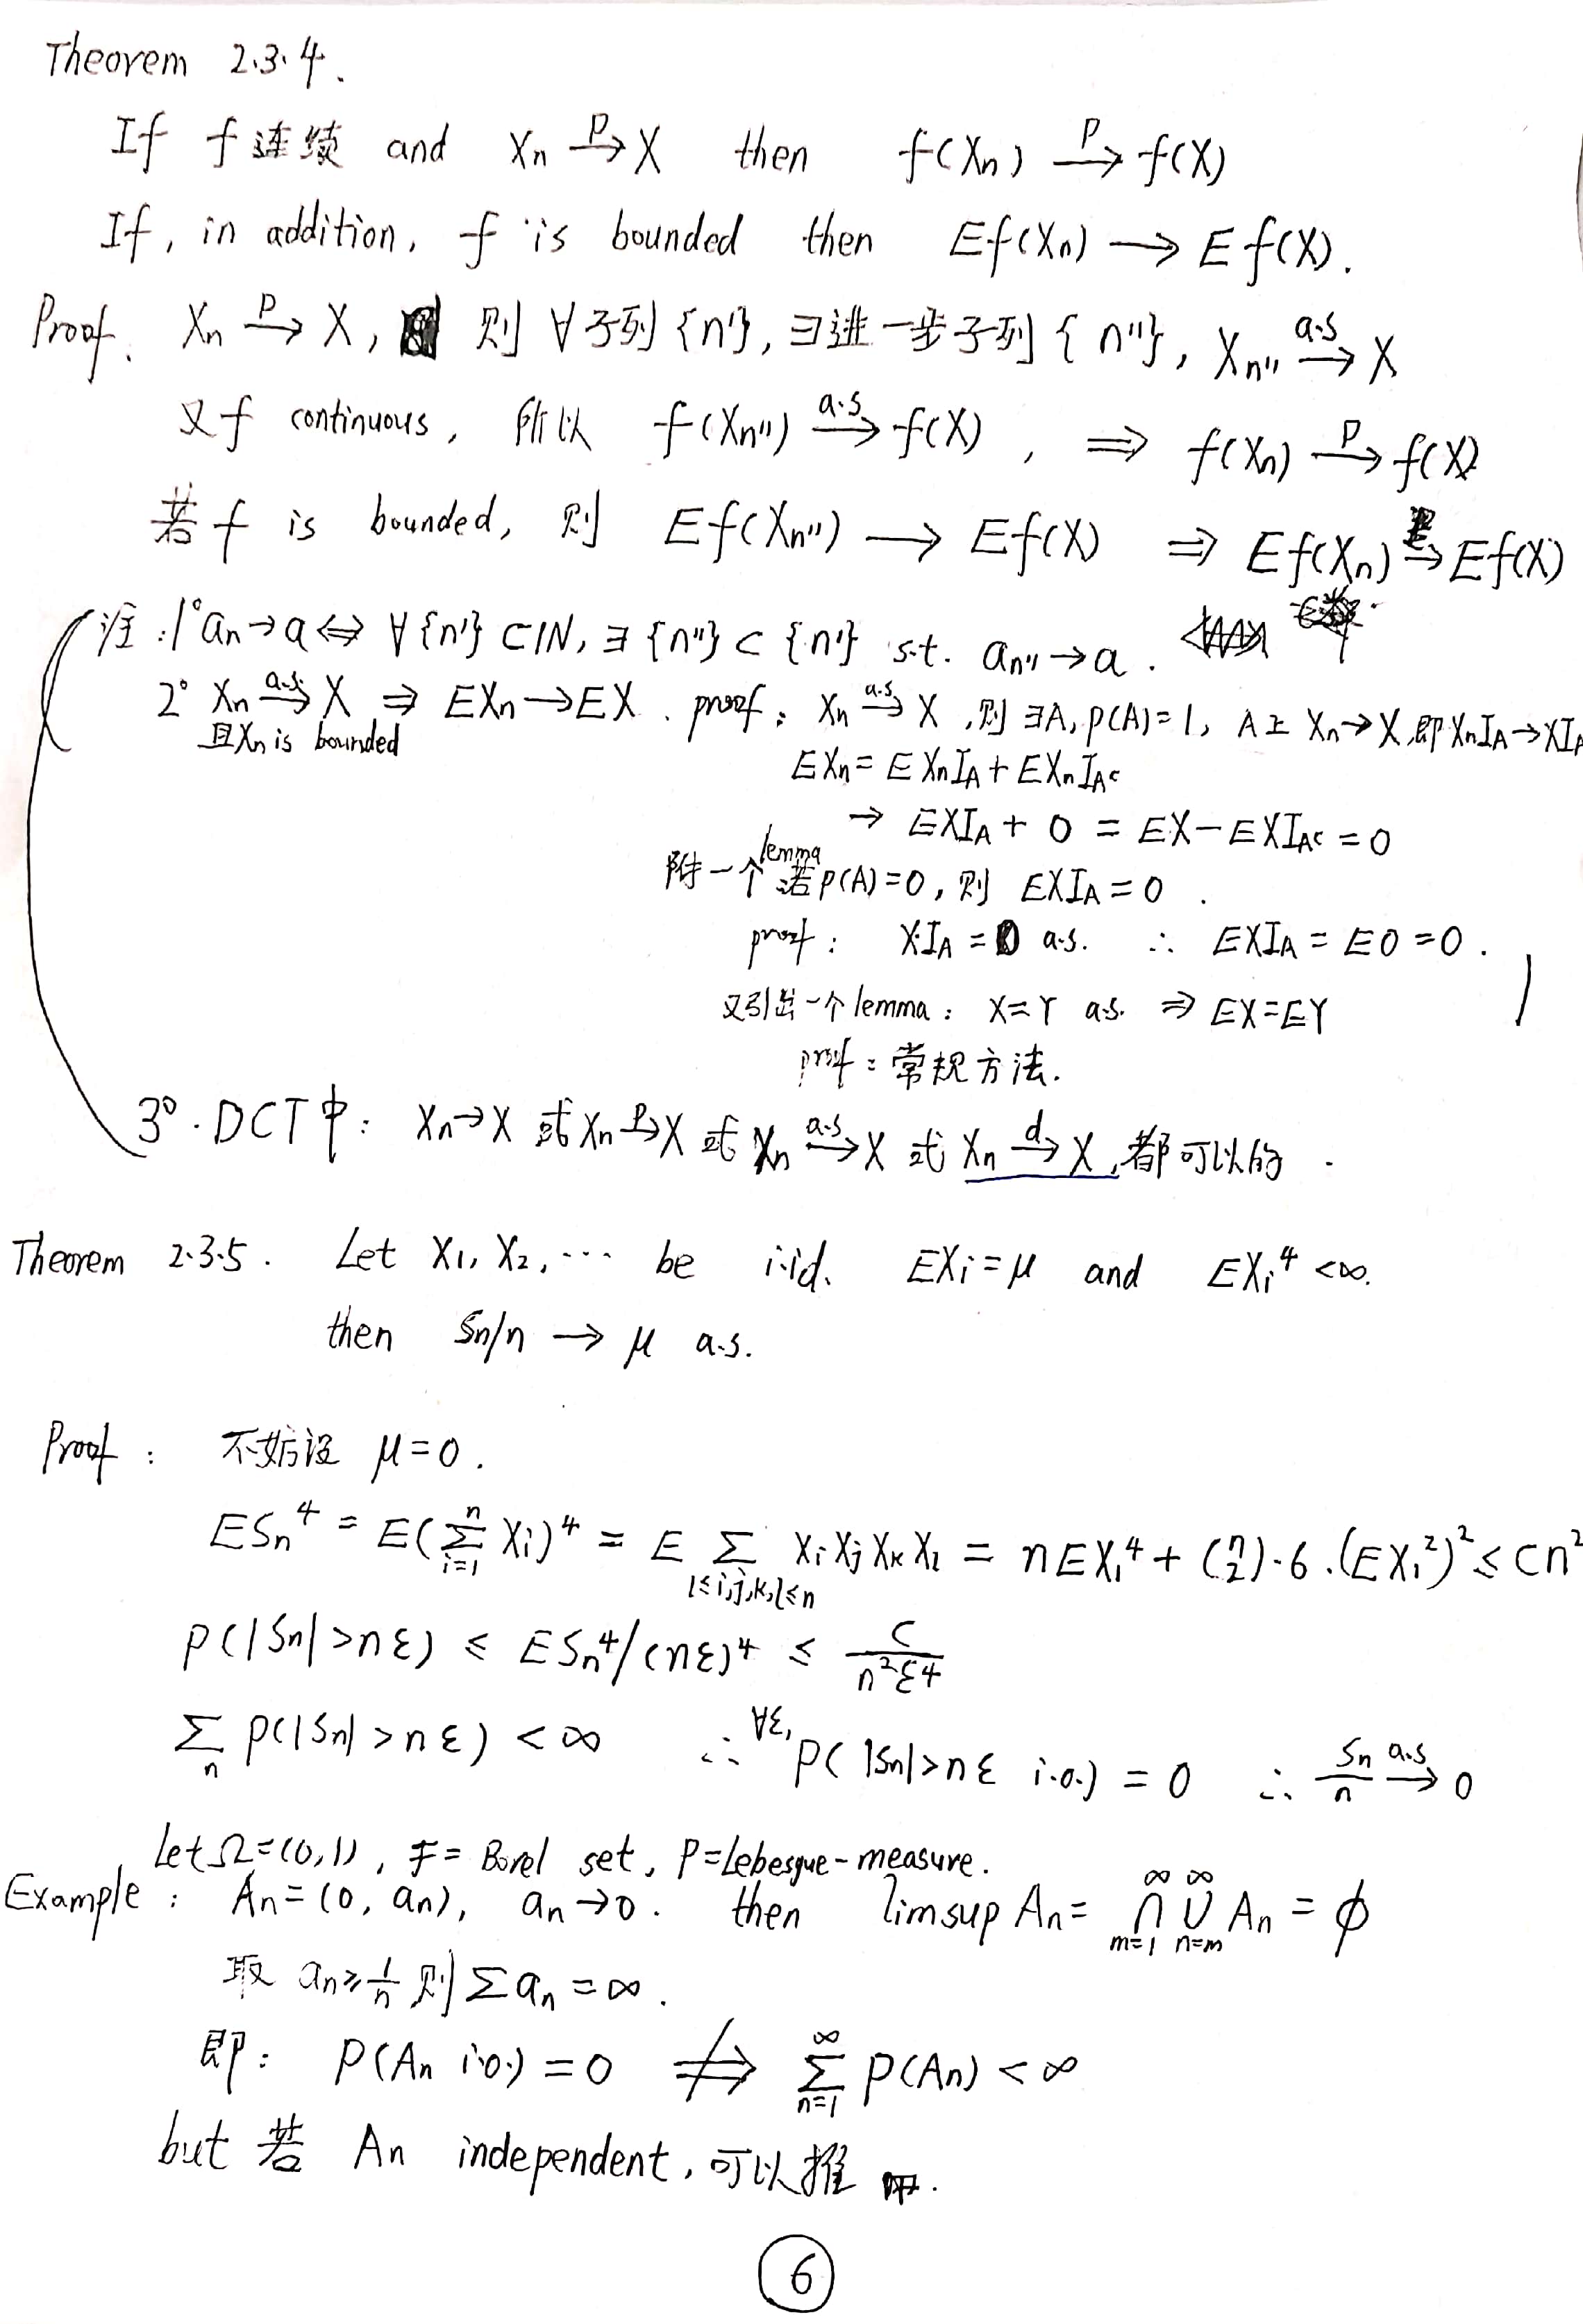 Theorem 2.3.4.
If f连续 and Xn →(P) X then f(Xn) →(P) f(X)
If, in addition, f is bounded then Ef(Xn) → Ef(X).
Proof. Xn →(P) X, 则 ∀子列 {n'}, ∃进一步子列 {n''}, Xn'' →(a.s) X
又f continuous, 所以 f(Xn'') →(a.s) f(X), ⇒ f(Xn) →(P) f(X)
若 f is bounded, 则 Ef(Xn'') → Ef(X) ⇒ Ef(Xn) → Ef(X)
注: 1° an→a ⇔ ∀{n'}⊂ℕ, ∃{n''}⊂{n'} s.t. an''→a.
2° Xn →(a.s.) X ⇒ EXn→EX. proof: Xn →(a.s) X, 则∃A, P(A)=1, A上 Xn→X, 即XnI_A→XI_A
且Xn is bounded
EXn = EXnI_A + EXnI_A^c
→ EXI_A + 0 = EX−EXI_A^c = 0
附一个lemma 若P(A)=0, 则 EXI_A = 0.
proof: X·I_A = 0 a.s. ∴ EXI_A = E0 = 0.
又引出一个lemma: X=Y a.s. ⇒ EX=EY
proof: 常规方法.
3°. DCT中: Xn→X 或 Xn →(P) X 或 Xn →(a.s) X 或 Xn →(d) X, 都可以的.
Theorem 2.3.5. Let X1, X2, ⋯ be i.i.d. EXi=μ and EXi^4 <∞.
then Sn/n → μ a.s.
Proof: 不妨设 μ=0.
ESn^4 = E(∑_{i=1}^n Xi)^4 = E ∑_{1≤i,j,k,l≤n} XiXjXkXl = nEX1^4 + (n 2)·6·(EX1^2)^2 ≤ Cn^2
P(|Sn|>nε) ≤ ESn^4/(nε)^4 ≤ C/(n^2ε^4)
∑_n P(|Sn|>nε) <∞ ∴ ∀ε, P(|Sn|>nε i.o.) = 0 ∴ Sn/n →(a.s) 0
Let Ω=(0,1), F= Borel set, P=Lebesgue-measure.
Example: An=(0, an), an→0. then limsup An = ∩_{m=1}^∞ ∪_{n=m}^∞ An = ϕ
取 an≥1/n 则 ∑an=∞.
即: P(An i.o.)=0 ⇏ ∑_{n=1}^∞ P(An)<∞
but 若 An independent, 可以推.
6